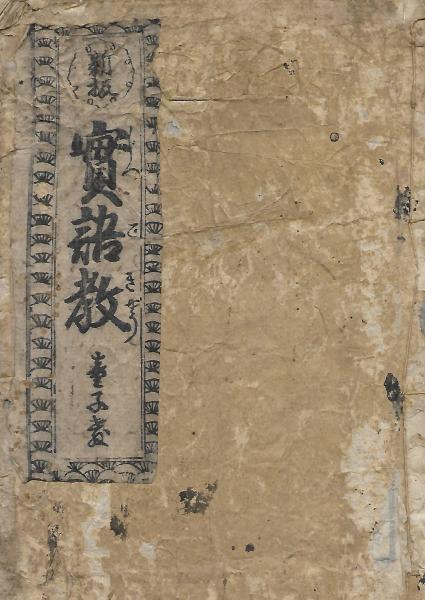 新板
實語教
童子教